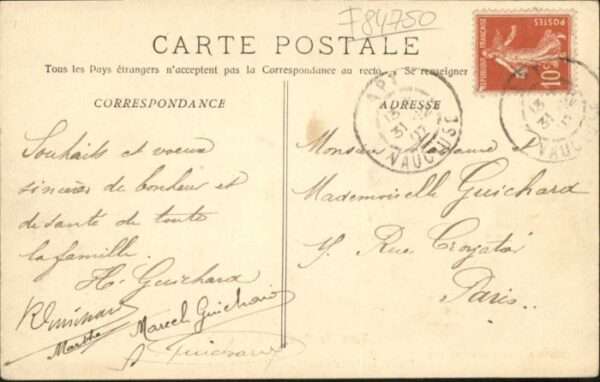 F84750
CARTE POSTALE
Tous les Pays étrangers n'acceptent pas la Correspondance au recto. Se renseigner
CORRESPONDANCE
ADRESSE
POSTES
REPUBLIQUE FRANÇAISE
10c
APT
13
31
VAUCLUSE
13
31
VAUCLUSE
Souhaits et voeux
sincères de bonheur et
de santé de toute
la famille.
H. Guichard
Marthe
Marcel Guichard
Guichard
Monsieur Madame et
Mademoiselle Guichard
Rue
Paris